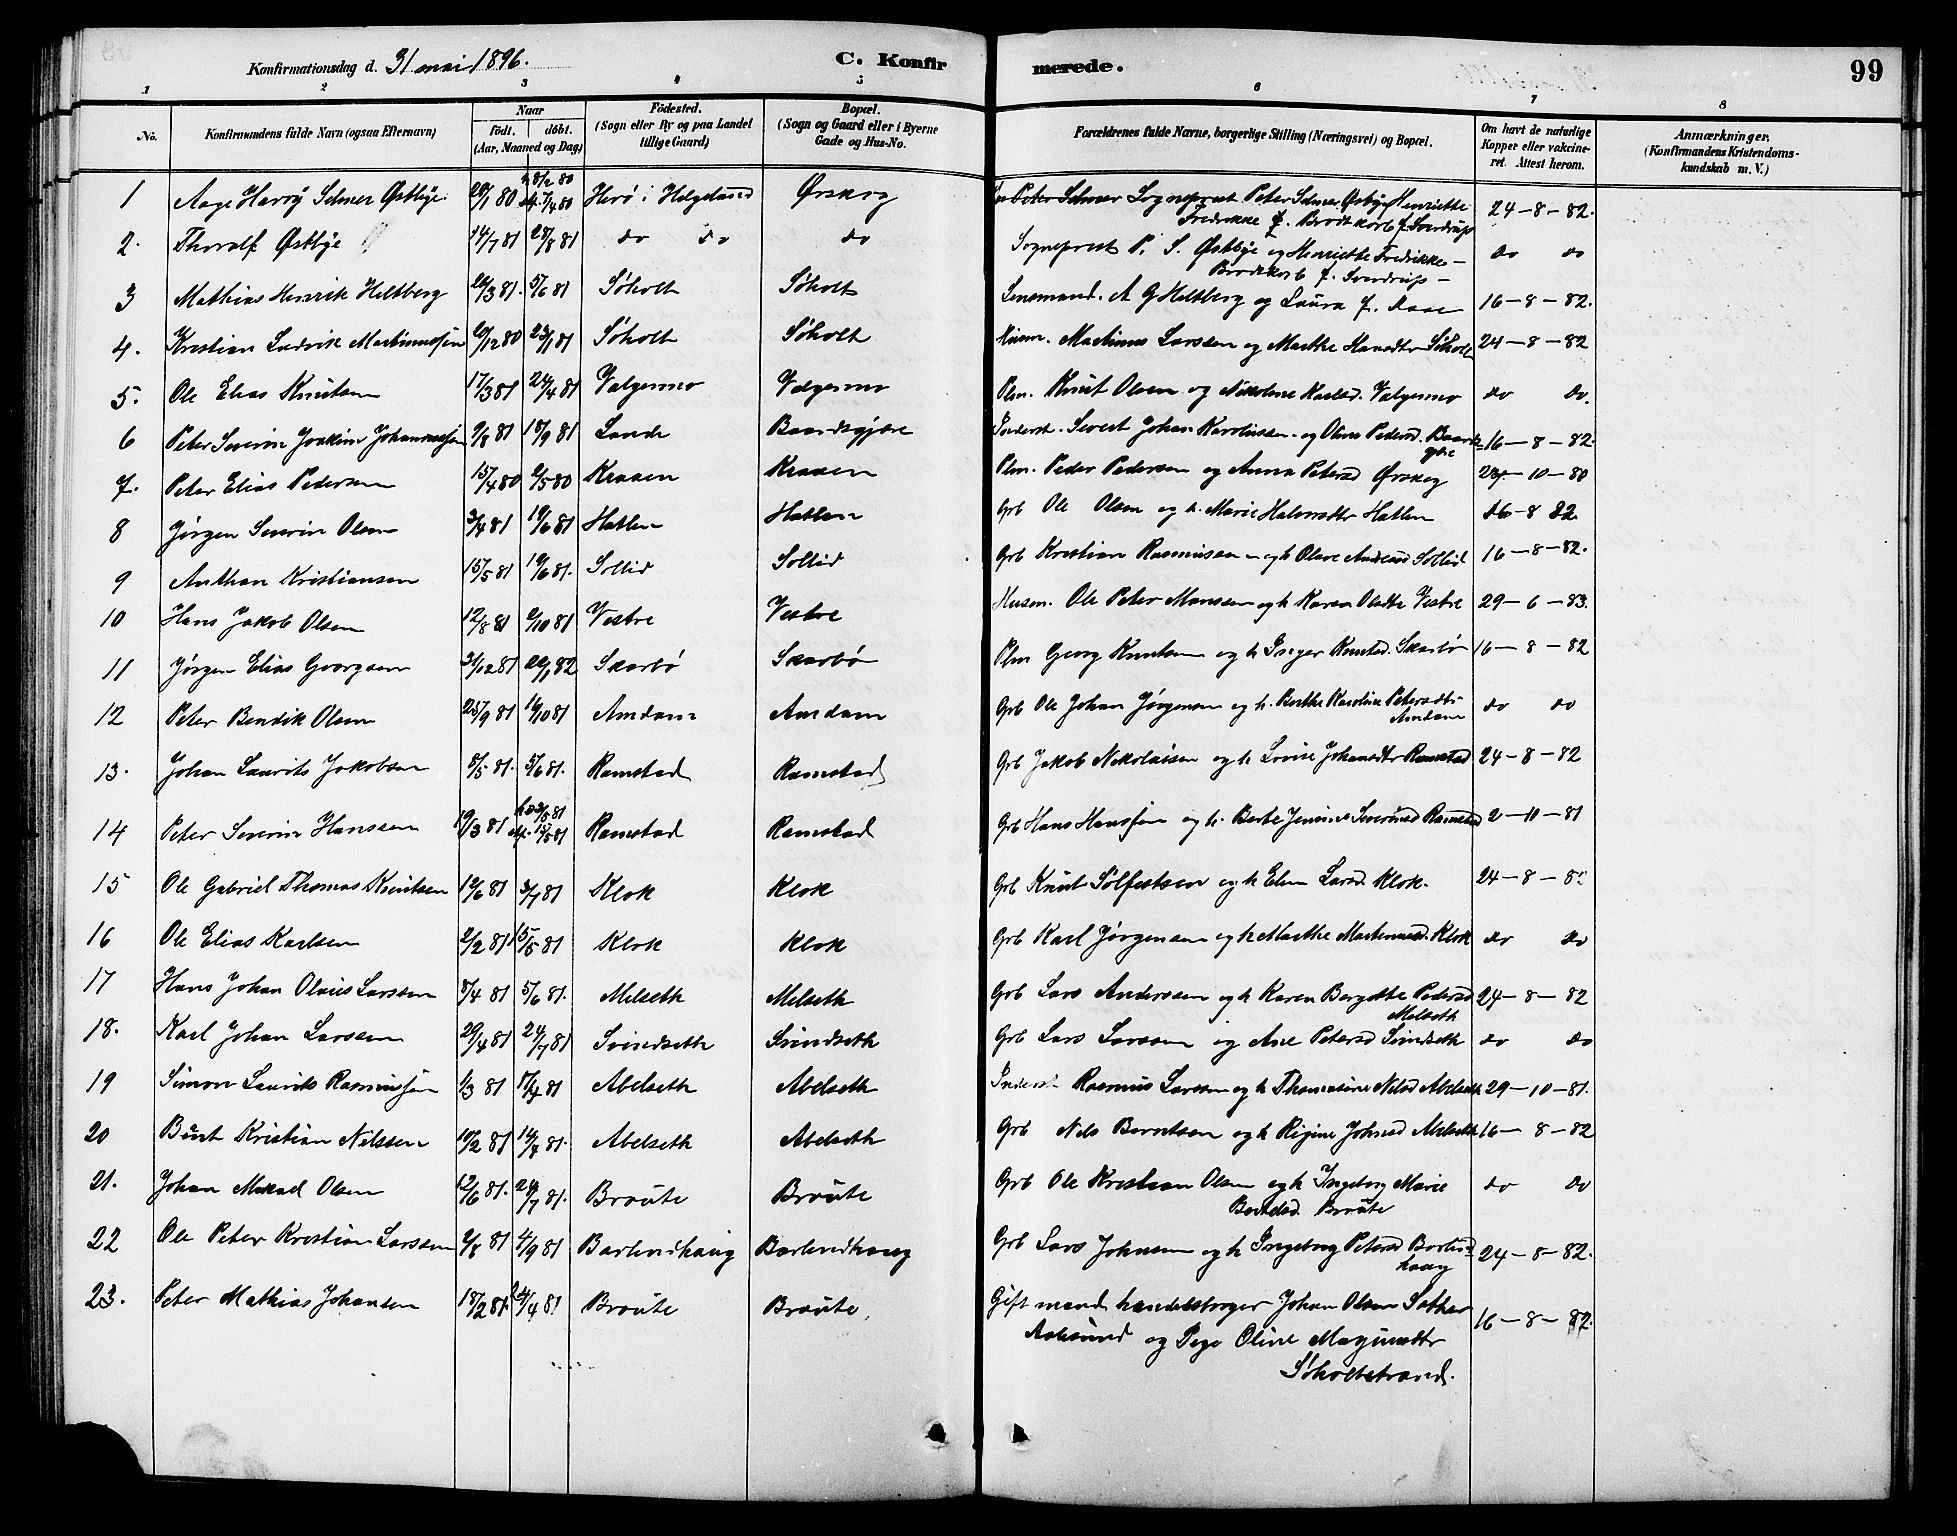 Konfirmationsdag d. 31 mai 1896. C. Konfirmerede. 99
1 2 3 4 5 6 7 8
No. Konfirmandens fulde Navn (ogsaa Efternavn) Naar født. døbt. (Aar, Maaned og Dag) Födested. (Sogn eller By og paa Landet tillige Gaard) Bopæl. (Sogn og Gaard eller i Byerne Gade og Hus-No. Forældrenes fulde Navne, borgerlige Stilling (Næringsvei) og Bopæl. Om havt de naturlige Kopper eller vakcineret. Attest herom. Anmærkninger. (Konfirmandens Kristendomskundskab m. V.)
1 Aage Harry Selmer Østbye 28/1 80 h 8/2 80 Herø i Helgeland Ørskog Sogneprest Peter Selmer Østbye Henriette 24-8-82.
Fredrikke f. Brodtkorb f. Sverdrup
2. Thoralf Østbye 14/7 81 28/8 81 do do do Sogneprest P. S. Østbye og Henriette Fredrikke do do
Brodtkorb f. Sverdrup
3 Mathias Henrik Heltberg 24/3 81. 5/6 81 Søholt Søholt Lensmand. A G Heltberg og Laura f. Daae 16-8-82.
4. Kristian Ludvik Martinussen 29/12 80 23/1 81 Søholt Søholt Husm. Martinus Larssen og Marthe Hansdtr Søholt 24-8-82
5. Ole Elias Knutsen 17/3 81 24/4 81 Valgermo Valgermo Plm. Knut Olsen og Nikoline Karlsd. Valgermo do do.
6 Peter Severin Joakim Johannessen 9/8 81 18/9 81 Lande Baardsgjære Inderst. Sivert Johan Karolussen og Oline Pedersd. Baardsgjre 16-8-82.
7. Peter Elias Pedersen 15/4 80 2/5 80 Kraaen Kraaen Plm. Peder Pedersen og Anna Petersd Ørskog 24-10-80
8 Jørgen Severin Olsen 3/4 81 19/6 81 Hatlen Hatlen Grb Ole Olsen og h. Marie Halvorsdtr Hatlen 16-8 82.
9 Anthon Kristiansen 15/5 81 19/6 81. Sollid Sollid Grb Kristian Rasmussen og h Olave Andreasd Sollid 16-8-82.
10 Hans Jakob Olsen 12/8 81 2/10 81 Vestre Vestre Husm. Ole Peter Monssen og h Karen Olsdtr Vestre 29-6-83.
11 Jørgen Elias Georgsen 31/12 81 22/1 82 Skarbø Skarbø Plm Georg Knutsen og h Inger Knutsd. Skarbø 16-8-82
12 Peter Bendik Olsen 25/9 81 16/10 81 Amdam Amdam Grb Ole Johan Jørgensen og h. Berthe Karoline Petersdtr do do
Amdam
13. Johan Laurits Jakobsen 8/5 81. 5/6 81. Ramstad Ramstad Grb Jakob Nikolaisen og h Lovise Johansdtr Ramstad 24-8-82
14 Peter Severin Hanssen 19/3 81 Ramstad Ramstad Grb Hans Hanssen og h. Berte Jensine Severinsd Ramstad 2-10-81
15 Ole Gabriel Thomas Knutsen 12/6 81 3/7 81 Klok Klok Grb Knut Solfestsen og h Elen Larsd Klok. 24-8-82
16 Ole Elias Karlsen 2/2 81 15/5 81 Klok Klok Grb Karl Jørgensen og h Marthe Martinusd. Klok do do
17 Hans Johan Olaus Larssen 8/4 81 5/6 81. Melseth Melseth Grb Lars Anderssen og h Karen Bergithe Pedersd 24-8-82
Melseth
18. Karl Johan Larssen 29/4 81 24/7 81 Svindseth Svindseth Grb Lars Larssen og Ane Petersd Svindseth do do
19 Simon Laurits Rasmussen 1/3 81 17/4 81 Abelseth Abelseth Inderst Rasmus Larssen og h Thomasine Nilsd Abelseth 29-10-81.
20 Bernt Kristian Nilssen 10/2 81 14/4 81. Abelseth Abelseth Grb Nils Berntsen og h Rigine Johnsd Abelseth 16-8-82
21. Johan Mikael Olsen 12/6 81. 24/7 81. Braute Braute Grb Ole Kristian Olsen og h Ingeborg Marie do do
Bertelsd. Braute
22 Ole Peter Kristian Larssen 2/8 81 4/9 81 Barlindhaug Barlindhaug Grb Lars Johnsen og h Ingeborg Petersd Barlindhaug 24-8-82.
23. Peter Mathias Johansen 18/2 81. 24/4 81 Braute Braute. Gift mand handelsborger Johan Olsen Sother 16-8-82.
Aalesund og Pige Oline Magnusdtr
Søholtstrand.